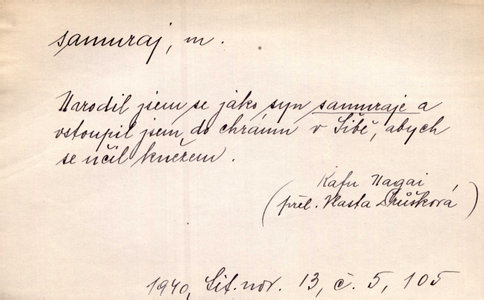 samuraj, m.
Narodil jsem se jako syn samuraje a
vstoupil jsem do chrámu v Šibě, abych
se učil knězem.
Kafu Nagai
(přel. Vlasta Průšková)
1940, Lit. nov. 13, č. 5, 105